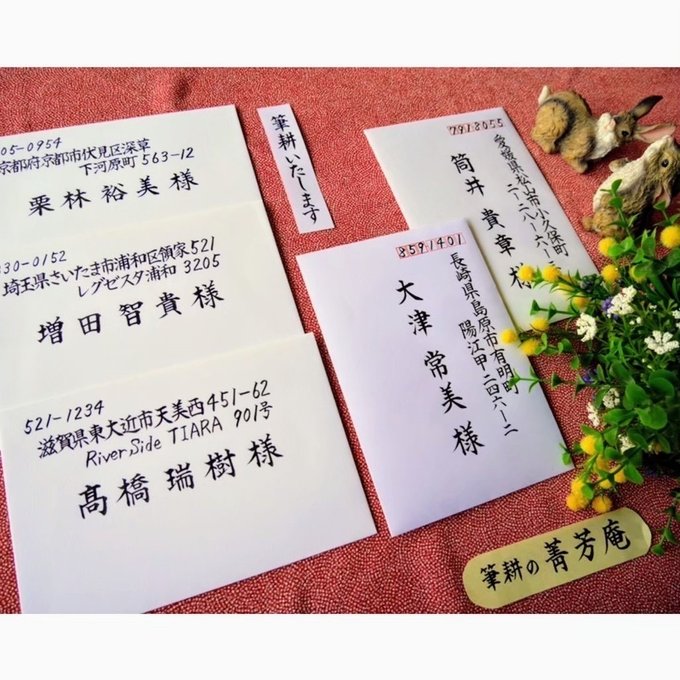 05-0954
京都府京都市伏見区深草
下河原町 563-12
栗林裕美様
330-0152
埼玉県さいたま市浦和区領家521
レグゼスタ浦和 3205
増田智貴様
521-1234
滋賀県東大近市天美西451-62
River Side TIARA 901号
髙橋瑞樹様
筆耕いたします
7918055
愛媛県松山市小久保町
二ー二八ー一六ー
筒井貴章様
8591401
長崎県島原市有明町
陽江甲二四六ー二
大津常美様
筆耕の菁芳庵